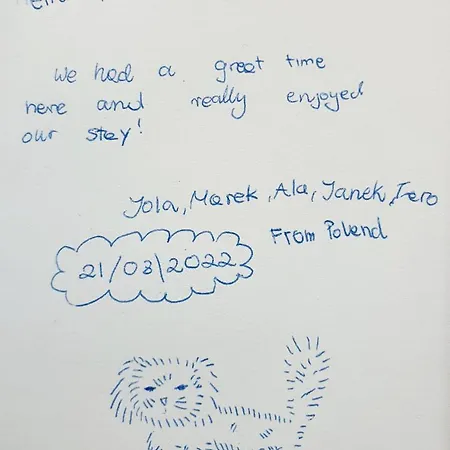 we had a great time
here and really enjoyed
our stay!
Jola, Marek, Ala, Janek,
From Poland
21/03/2022